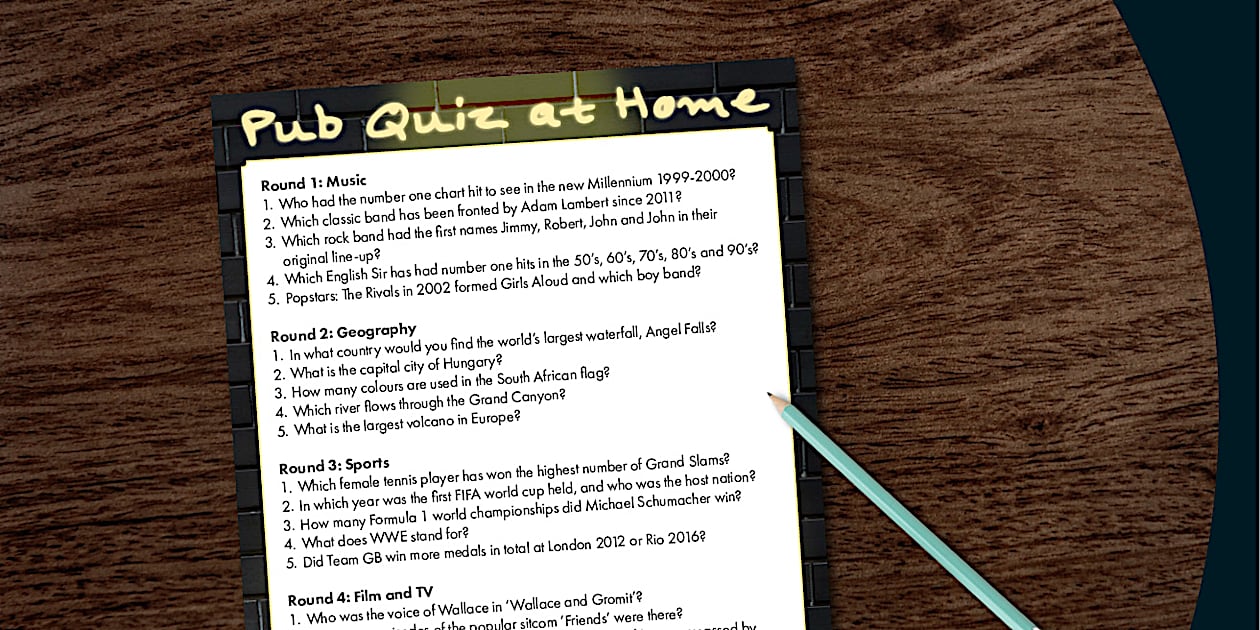 Pub Quiz at Home
Round 1: Music
1. Who had the number one chart hit to see in the new Millennium 1999-2000?
2. Which classic band has been fronted by Adam Lambert since 2011?
3. Which rock band had the first names Jimmy, Robert, John and John in their
original line-up?
4. Which English Sir has had number one hits in the 50's, 60's, 70's, 80's and 90's?
5. Popstars: The Rivals in 2002 formed Girls Aloud and which boy band?
Round 2: Geography
1. In what country would you find the world's largest waterfall, Angel Falls?
2. What is the capital city of Hungary?
3. How many colours are used in the South African flag?
4. Which river flows through the Grand Canyon?
5. What is the largest volcano in Europe?
Round 3: Sports
1. Which female tennis player has won the highest number of Grand Slams?
2. In which year was the first FIFA world cup held, and who was the host nation?
3. How many Formula 1 world championships did Michael Schumacher win?
4. What does WWE stand for?
5. Did Team GB win more medals in total at London 2012 or Rio 2016?
Round 4: Film and TV
1. Who was the voice of Wallace in 'Wallace and Gromit'?
of the popular sitcom 'Friends' were there?
by